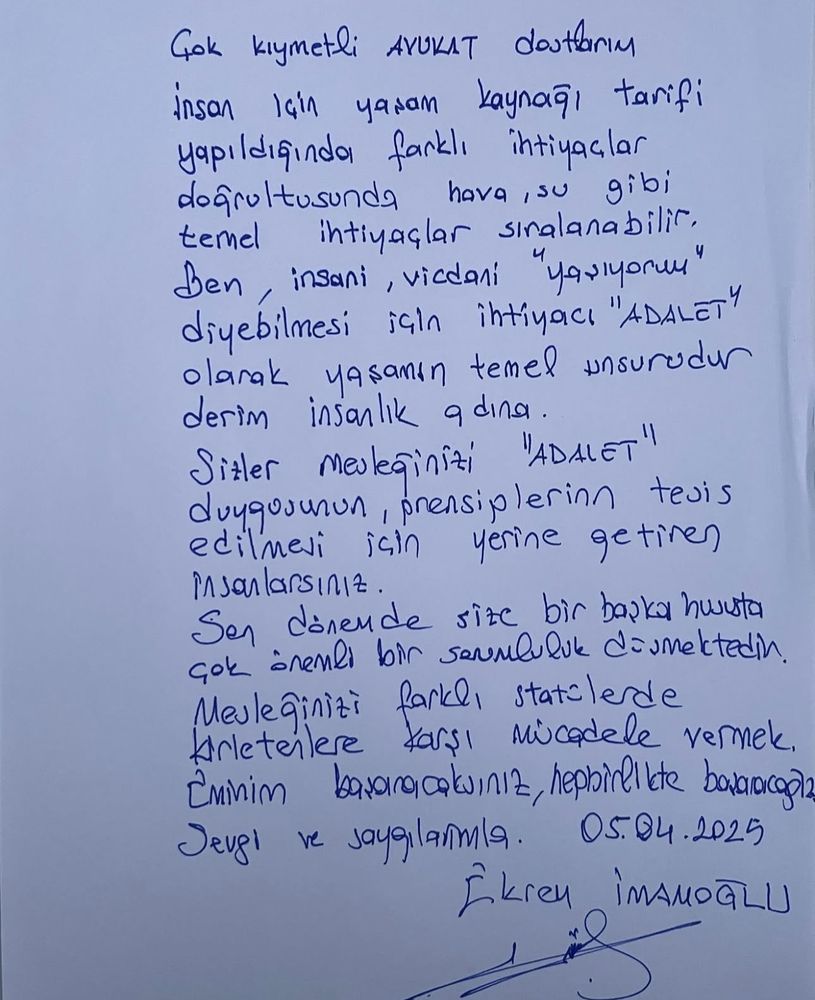 Çok kıymetli AVUKAT dostlarım
İnsan için yaşam kaynağı tarifi
yapıldığında farklı ihtiyaçlar
doğrultusunda hava, su gibi
temel ihtiyaçlar sıralanabilir.
Ben, insani, vicdani "yaşıyorum"
diyebilmesi için ihtiyacı "ADALET"
olarak yaşamın temel unsurudur
derim insanlık adına.
Sizler mesleğinizi "ADALET"
duygusunun, prensiplerinn tesis
edilmesi için yerine getiren
insanlarsınız.
Son dönemde size bir başka hususta
çok önemli bir sorumluluk düşmektedir.
Mesleğinizi farklı statülerde
kirletenlere karşı mücadele vermek.
Eminim başaracaksınız, hepbirlikte başaracağız
Sevgi ve saygılarımla. 05.04.2025
Ekrem İMAMOĞLU